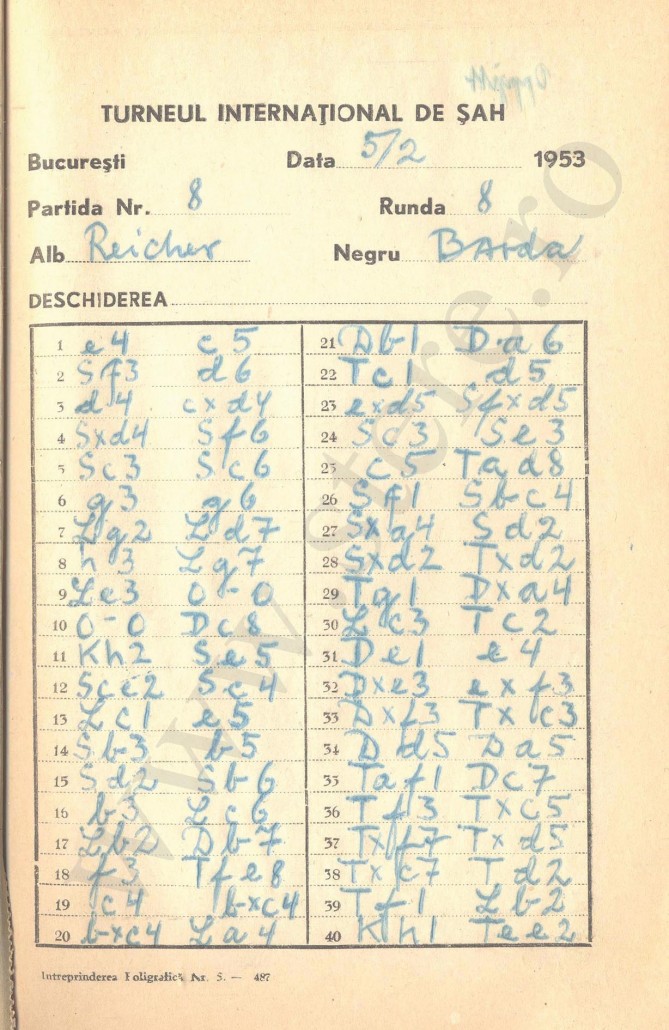 TURNEUL INTERNAȚIONAL DE ȘAH
București Data 5/2 1953
Partida Nr. 8 Runda 8
Alb Reicher Negru Barda
DESCHIDEREA
1 e4 c5
2 Sf3 d6
3 d4 cxd4
4 Sxd4 Sf6
5 Sc3 Sc6
6 g3 g6
7 Lg2 Ld7
8 h3 Lg7
9 Le3 0-0
10 0-0 Dc8
11 Kh2 Se5
12 Sce2 Sc4
13 Lc1 e5
14 Sb3 b5
15 Sd2 Sb6
16 b3 Lc6
17 Lb2 Db7
18 f3 Tfe8
19 c4 bxc4
20 bxc4 La4
21 Db1 Da6
22 Tc1 d5
23 exd5 Sfxd5
24 Sc3 Se3
25 c5 Tad8
26 Sf1 Sbc4
27 Sxa4 Sd2
28 Sxd2 Txd2
29 Tg1 Dxa4
30 Lc3 Tc2
31 De1 e4
32 Dxe3 exf3
33 Dxf3 Txc3
34 Dd5 Da5
35 Taf1 Dc7
36 Tf3 Txc5
37 Txf7 Txd5
38 Txc7 Td2
39 Tf1 Lb2
40 Kh1 Tee2
Intreprinderea Poligrafică Nr. 5. — 487
www.stere.ro